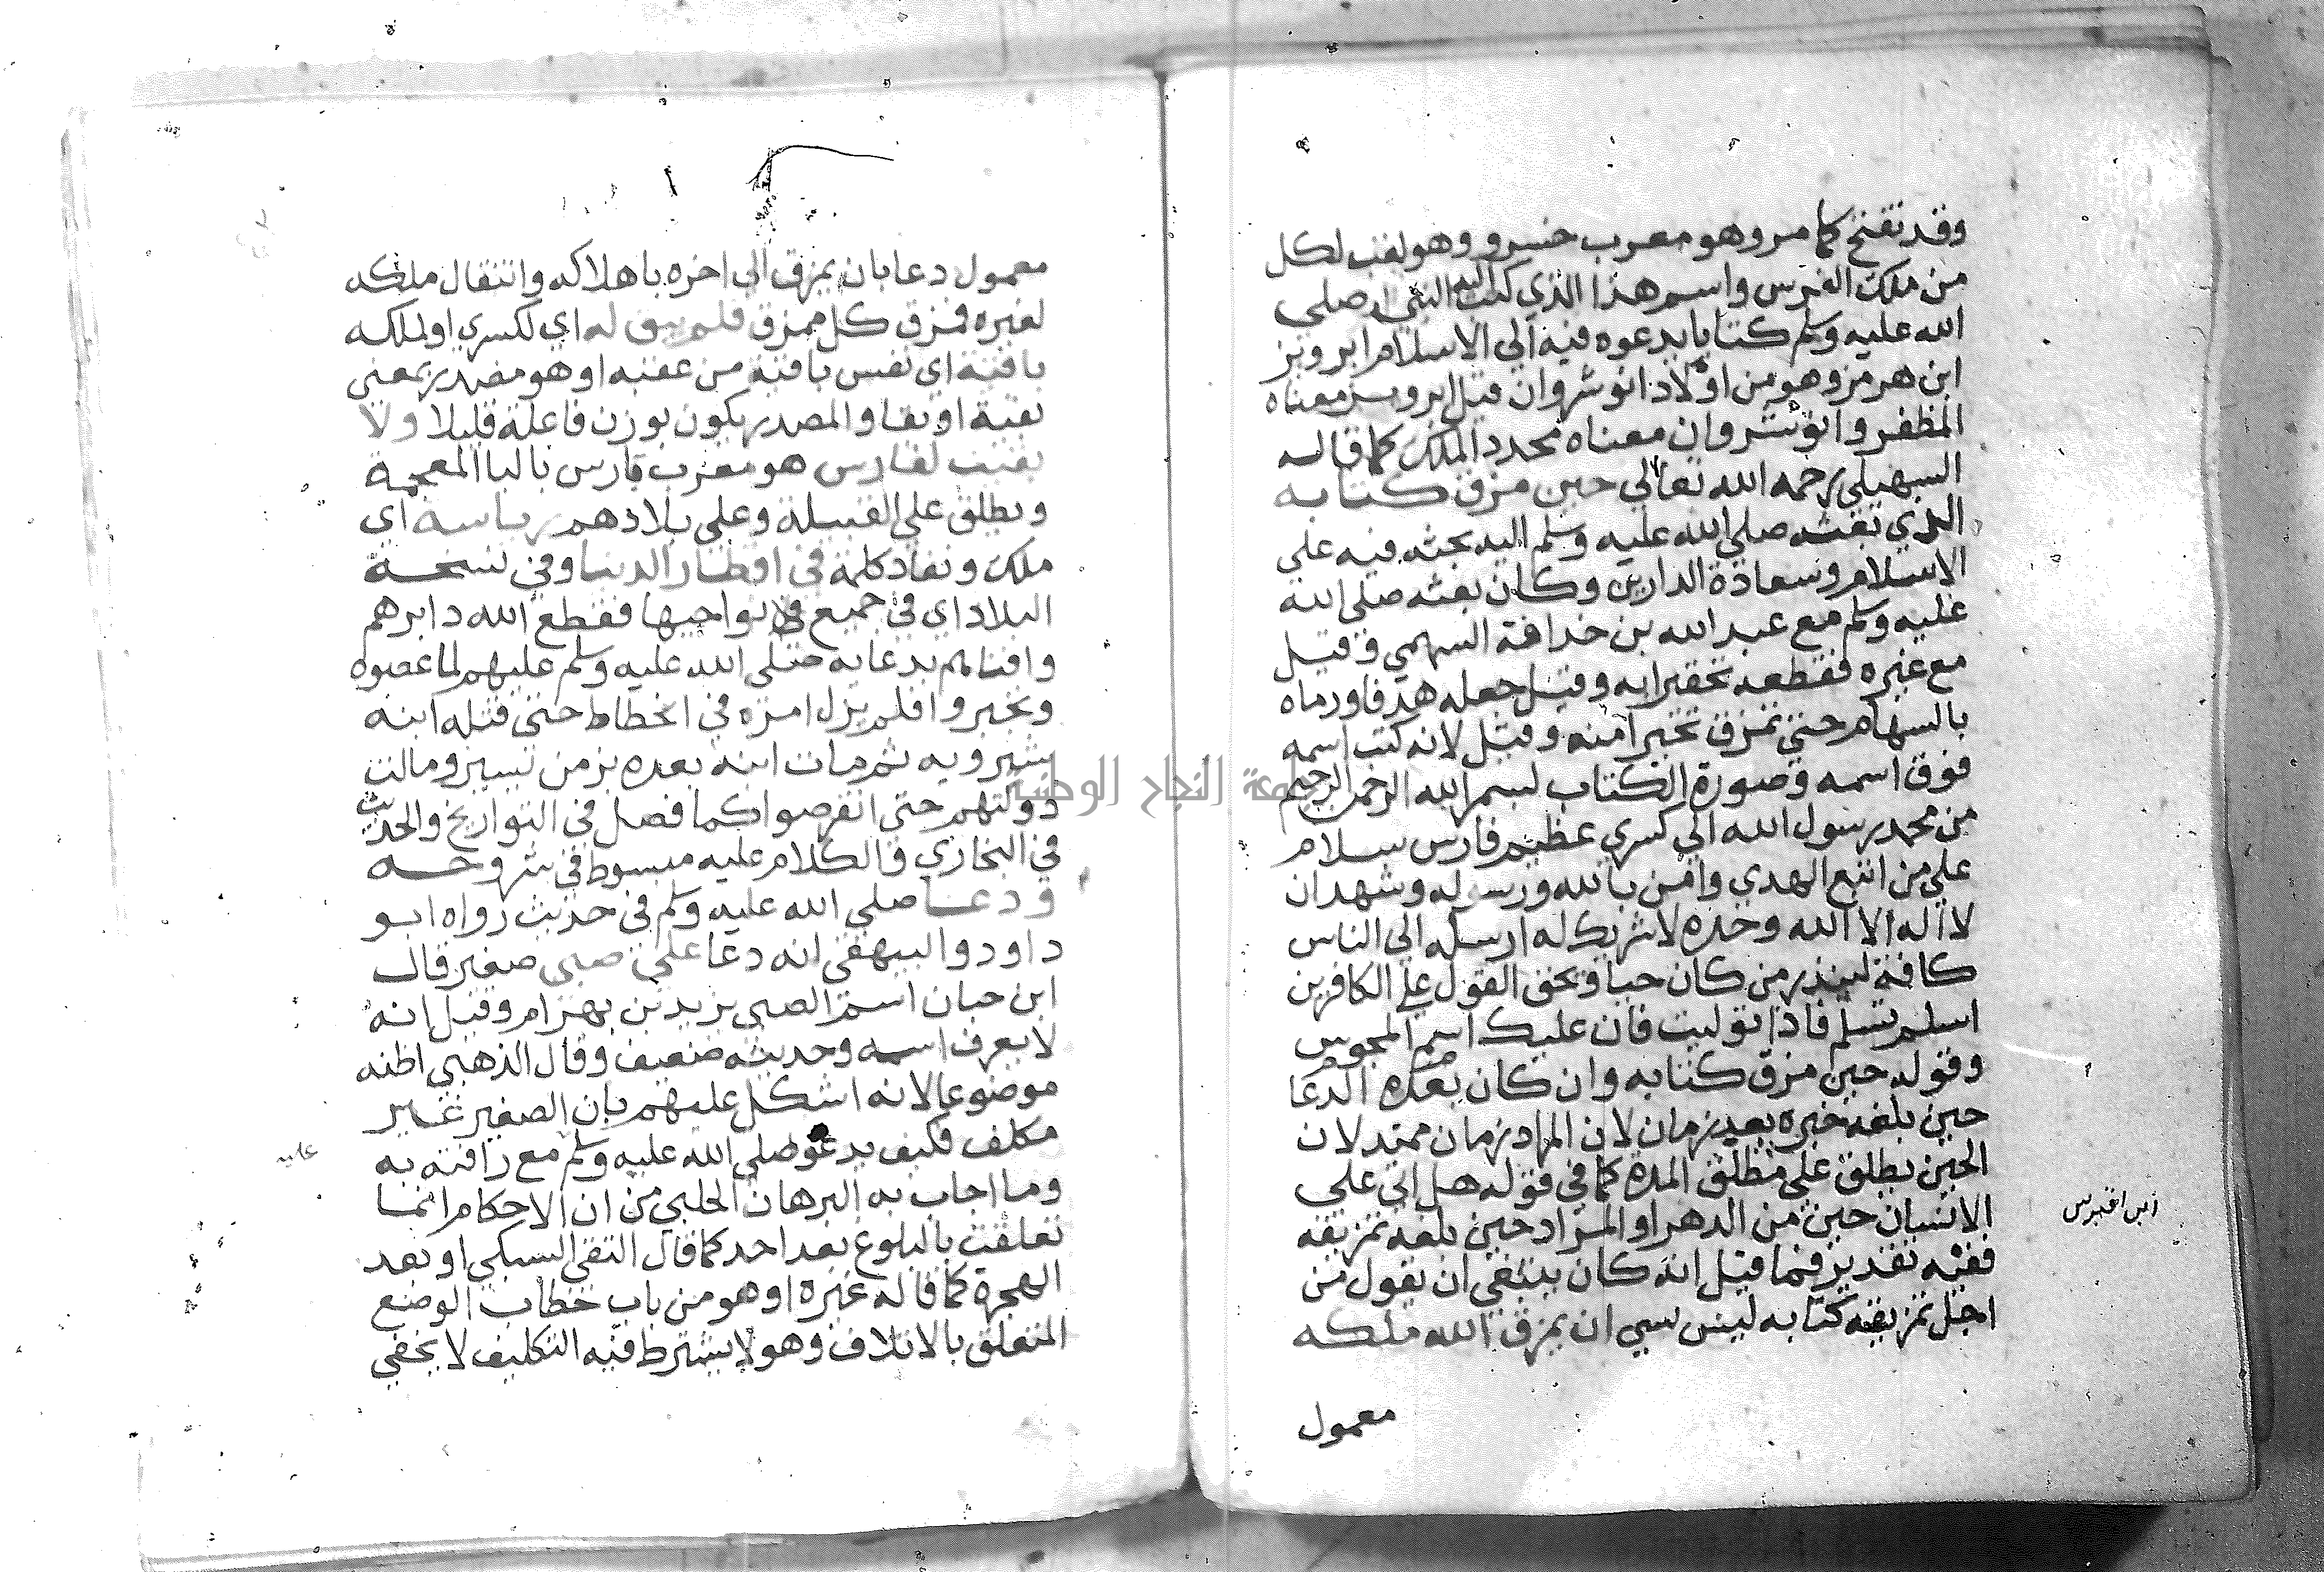 وقد تفتح كما مر وهو معرب خسرو وهو لقب لكل
من ملك الفرس واسم هذا الذي كتب اليه النبي صلى
الله عليه وسلم كتابا يدعوه فيه الي الاسلام ابرويز
ابن هرمز وهو من اولاد انوشروان قيل ابرويز معناه
المظفر وانوشروان معناه مجدد الملك كما قاله
السهيلي رحمه الله تعالي حين مزق كتابه
الذي بعثه صلي الله عليه وسلم اليه يحثه فيه علي
الاسلام وسعادة الدارين وكان بعثه صلي الله
عليه وسلم مع عبد الله بن حذافة السهمي وقيل
مع غيره فقطعه تحقيرا به وقيل جعله هدفا ورماه
بالسهام حتي تمزق تجبرا منه وقيل لانه كتب اسمه
فوق اسمه وصورة الكتاب بسم الله الرحمن الرحيم
من محمد رسول الله الي كسري عظيم فارس سلام
علي من اتبع الهدي وامن بالله ورسوله وشهد ان
لا اله الا الله وحده لا شريك له ارسله الي الناس
كافة لينذر من كان حيا ويحق القول علي الكافرين
اسلم تسلم فاذا توليت فان عليك اسم المجوس
وقوله حين مزق كتابه وان كان بعده الدعا
حين بلغه خبره بعد زمان لان المراد زمان ممتد لان
الحين يطلق علي مطلق المدة كما في قوله هل اتي علي
الانسان حين من الدهر او المراد حين بلغه تمزيقه
ففيه تقدير فما قيل انه كان ينبغي ان يقول من
اجل تمزيقه كتابه ليس بشي ان يمزق الله ملكه
معمول
معمول دعا بان يمزق الي اخره باهلاكه وانتقال ملكه
لغيره فمزق كل ممزق فلم يبق له اي لكسري او لملكه
باقية اي نفس باقية من عقبه او هو مصدر بمعني
بقية او بقا والمصدر يكون بوزن فاعلة قليلا ولا
بقيت لفارس هو معرب پارس بالبا المعجمة
ويطلق علي القبيلة وعلي بلادهم رياسة اي
ملك ونفاذ كلمة في اقطار الدنيا وفي نسخة
البلاد اي في جميع نواحيها فقطع الله دابرهم
وافناهم بدعايه صلي الله عليه وسلم عليهم لما عصوه
وتجبروا فلم يزل امره في انحطاط حتي قتله ابنه
شيرويه ثم مات ابنه بعده بزمن يسير ومالت
دولتهم حتي انقرضوا كما فصل في التواريخ والحديث
في البخاري والكلام عليه مبسوط في شروحه
ودعا صلي الله عليه وسلم في حديث رواه ابو
داود والبيهقي انه دعا علي صبي صغير قال
ابن حبان اسم الصبي يزيد بن بهرام وقيل انه
لا يعرف اسمه وحديثه ضعيف وقال الذهبي اظنه
موضوعا لانه اشكل عليهم بان الصغير غير
مكلف فكيف يدعو صلي الله عليه وسلم مع رافته به
وما اجاب به البرهان الحلبي من ان الاحكام انما
تعلقت بالبلوغ بعد احد كما قال التقي السبكي او بعد
الهجرة كما قاله غيره او هو من باب خطاب الوضع
المتعلق بالاتلاف وهو لا يشترط فيه التكليف لا يخفي
عليه
جامعة النجاح الوطنية